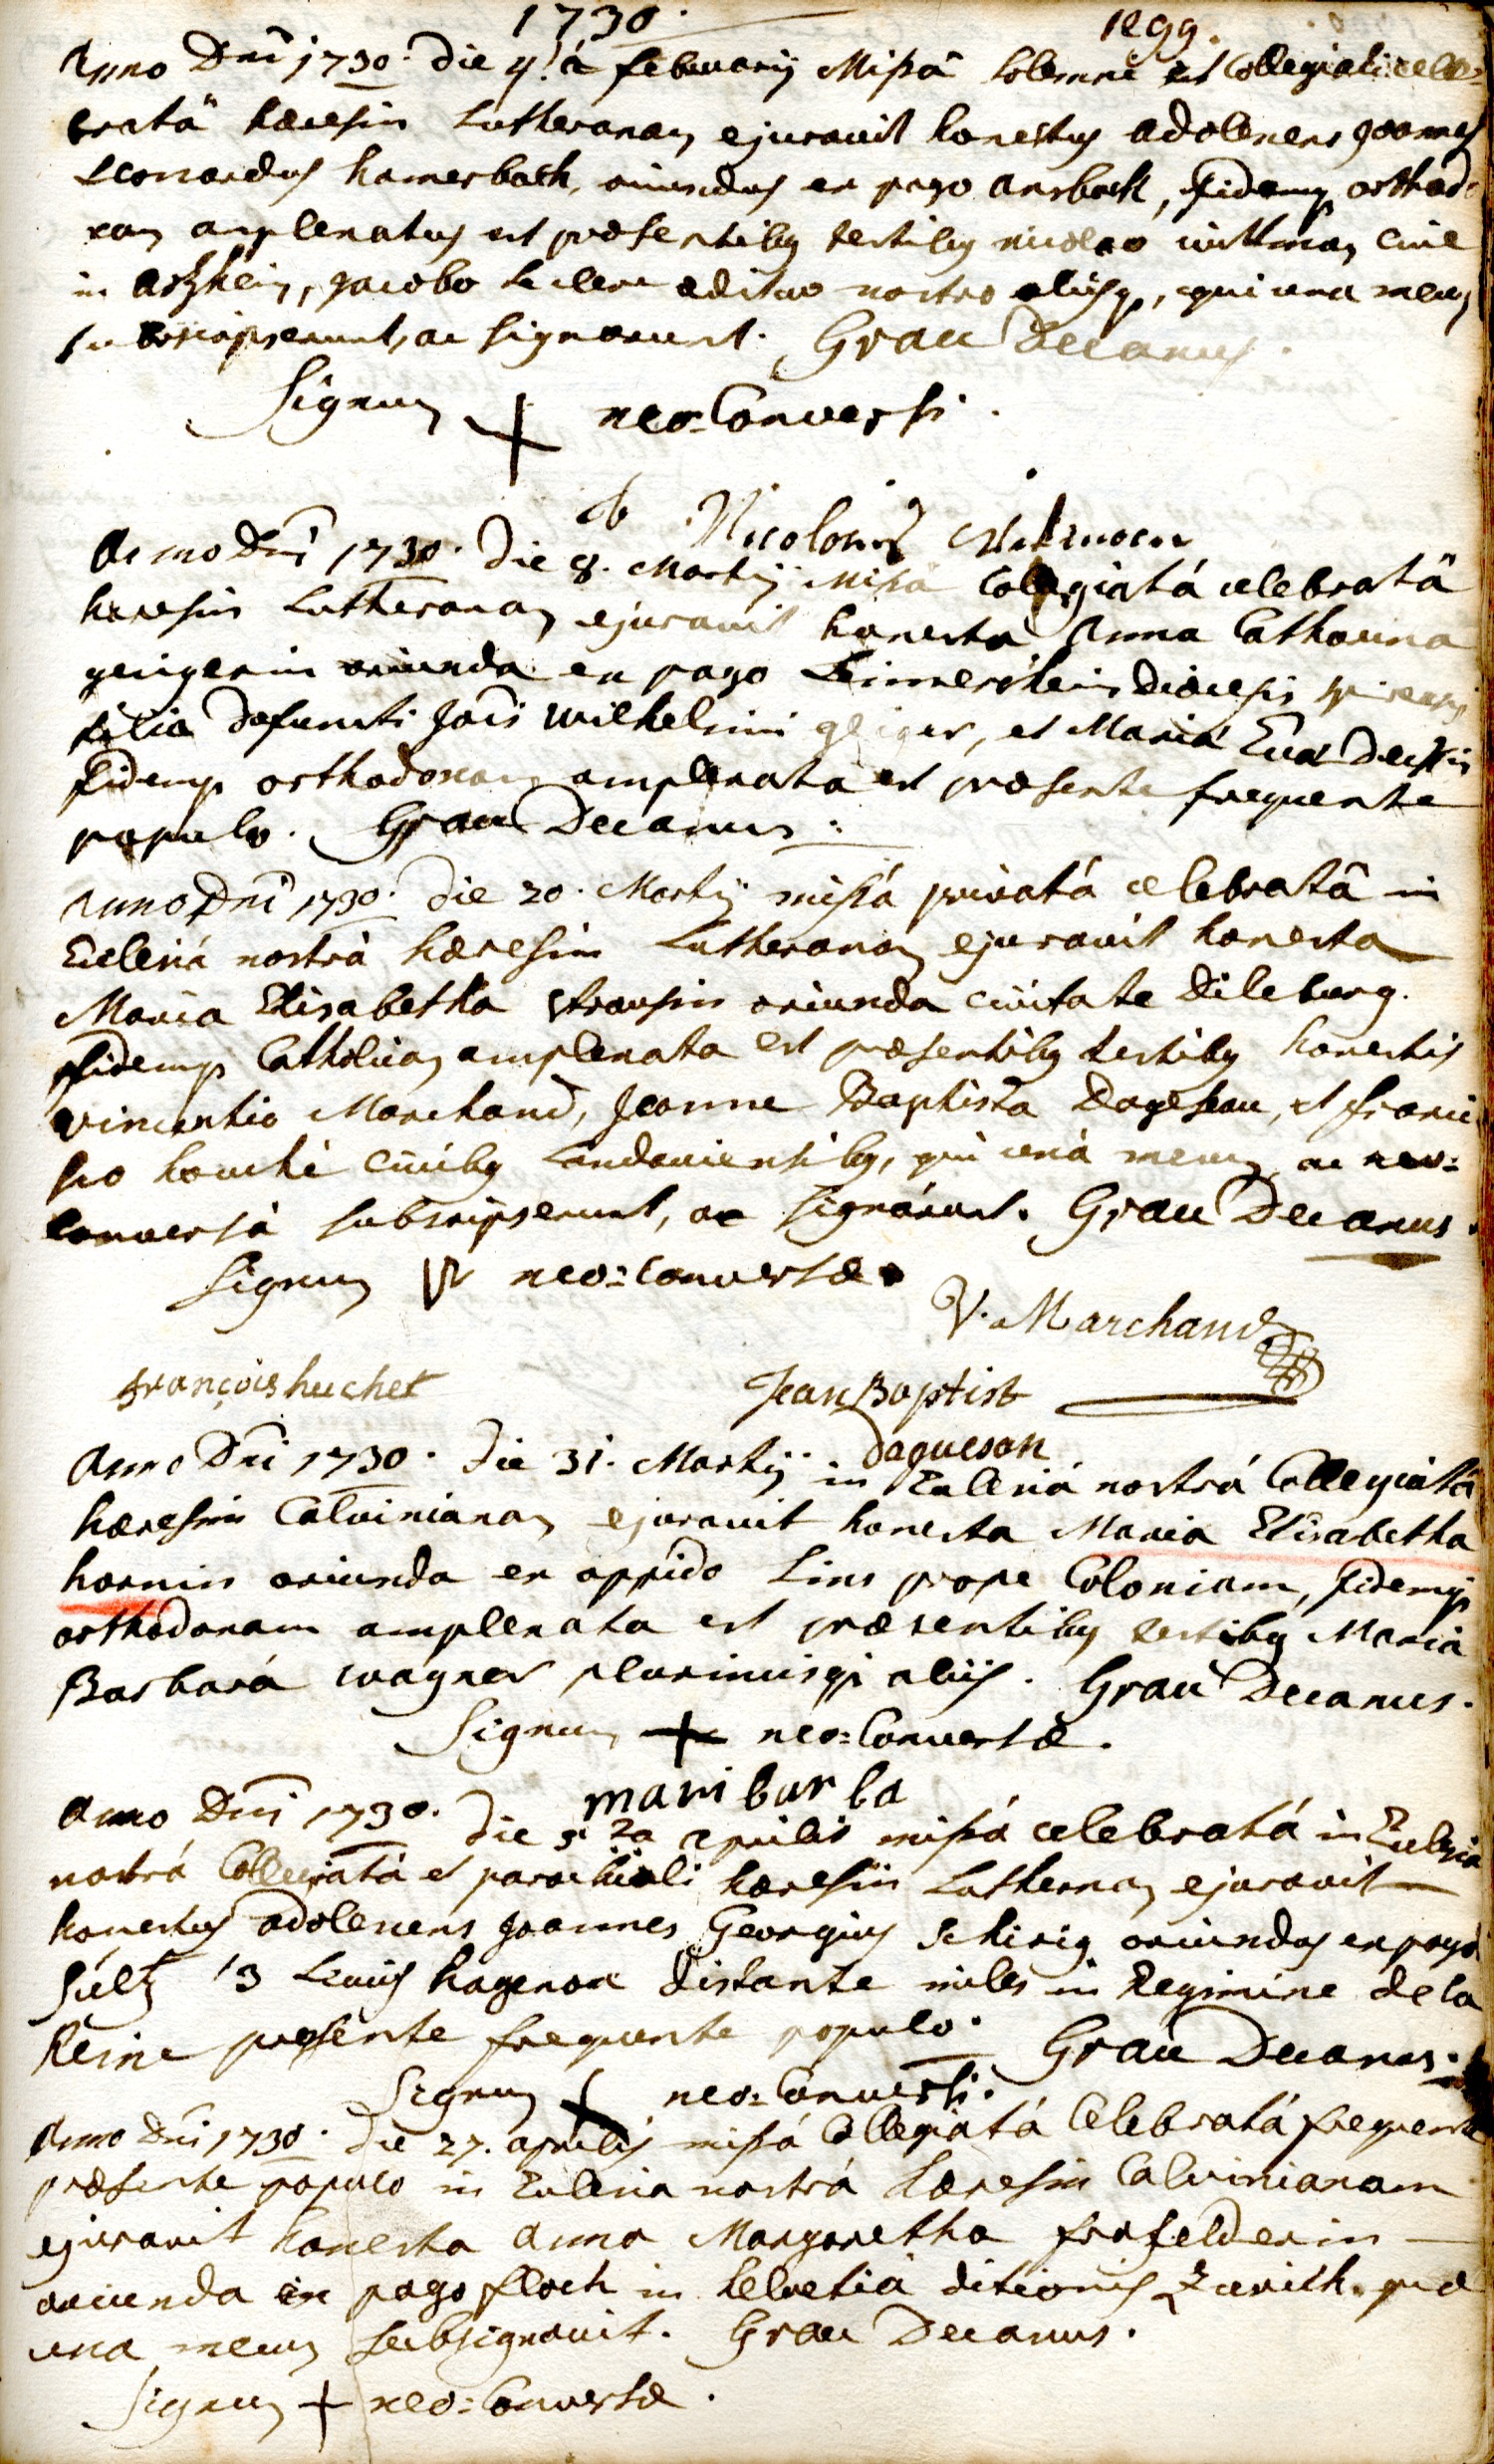 1730. 1299.
Anno Dni 1730. die 4ta februarij Missâ solemni et Collegiali cele=
bratâ hæresin Lutheranam ejuravit honestus adolescens Joannes
Leonardus hamerbach, oriundus ex pago ansbach, fidemq orthod=
xam amplexatus est præsentibus testibus nicolao wittman cive
in arzheim, Jacobo Leclerc ædituo nostro aliisq, qui una mecum
subscripserunt, ac signarunt. Grau Decanus.
Signum + neo=Conversi.
Nicolaus
Anno Dni 1730. die 8. Martij Missâ Collegiatâ celebratâ
hæresin Lutheranam ejuravit honesta Anna Catharina
geigerin oriunda ex pago Leimersheim diæcesis spirensis
filia defuncti Jois Wilhelmi geiger, et Maria Eva
fidemq orthodoxam amplexata est præsente frequente
populo. Grau Decanus.
Anno Dni 1730. die 20. Martij missâ privatâ celebratâ in
Ecclesiâ nostrâ hæresin Lutheranam ejuravit honesta
Maria Elisabetha strausin oriunda civitate Dileburg.
fidemq Catholicam amplexata est præsentibus testibus honestis
vincentio Marchand, Joanne Baptista Dageseau, et franci
sco houche civibus Landaviensibus, qui unà mecum ac neo=
conversâ subscripserunt, ac signârunt. Grau Decanus.
Signum neo=conversæ.
V. Marchand
françois huchet Jean Baptist
daguesan
Anno Dni 1730. die 31. Martij in Ecclesiâ nostrâ Collegiatâ
hæresin Calvinianam ejuravit honesta Maria Elisabetha
hornin oriunda ex oppido Lins prope Coloniam, fidemq
orthodoxam amplexata est præsentibus testibus Mariâ
Barbarâ wagner plurimisq aliis. Grau Decanus.
Signum + neo=Conversæ.
mari barba
Anno Dni 1730. die 2a aprilis missâ celebratâ in Ecclesia
nostrâ Collegiatâ et parochiali hæresin Lutheranam ejuravit
honestus adolescens Joannes Georgius Schirig oriundus ex pago
Sultz 3 Leucis hagenoa distante miles in Regimine de la
Reine præsente frequente populo. Grau Decanus.
Signum + neo=Conversi.
Anno Dni 1730. die 27. aprilis missâ Collegiatâ Celebratâ frequente
præsente populo in Ecclesia nostrâ hæresin Calvinianam
ejuravit honesta Anna Margaretha frofelderin
oriunda ex pago floch in helvetiâ ditionis Zurich. quæ
una mecum subsignavit. Grau Decanus.
Signum + neo=Conversæ.